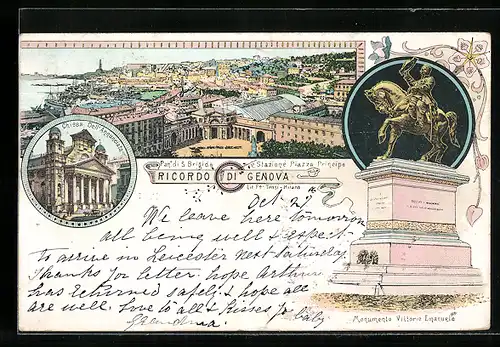 Chiesa Dell'Annunziata
Pan.a di S. Brigida e Stazione Piazza Principe
RICORDO DI GENOVA
Oct 27
We leave here tomorrow
all being well & expect
to arrive in Leicester next Saturday.
Thanks for letter. hope Arthur
has returned safely & hope all
are well. Love to all & kisses for baby
Grandma.
Monumento Vittorio Emanuele